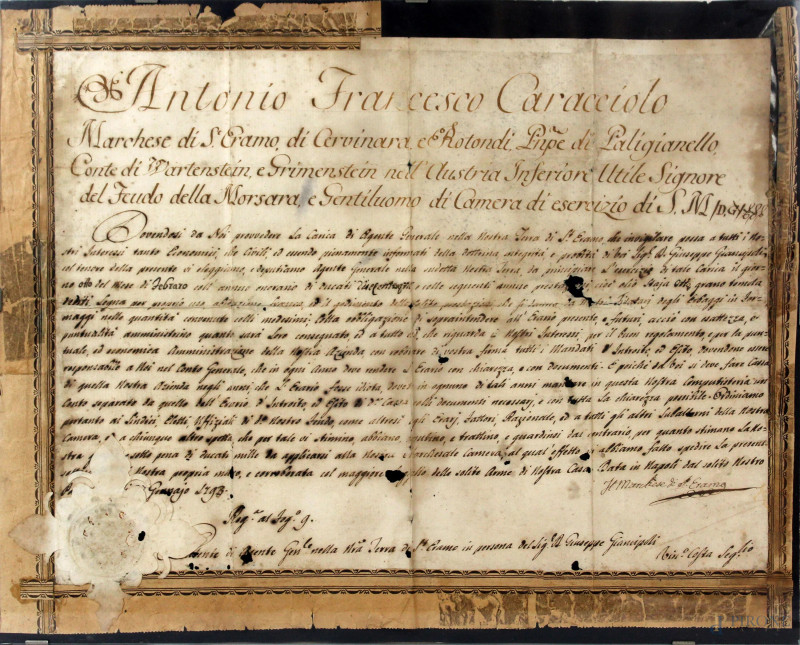 Antonio Francesco Caracciolo
Marchese di S.t Eramo, di Cervinara, e Rotondi, Pñpe di Paligianello,
Conte di Wartenstein, e Grimenstein nell'Austria Inferiore Utile Signore
del Feudo della Morsara, e Gentiluomo di Camera di esercizio di S. M.
Dovendosi da Noi provvedere la Carica di Agente Generale nella Nostra Terra di S.t Eramo, da invigilare sopra a tutti i No-
stri Interessi tanto Economici, che Civili, ed essendo pienamente informati della dottrina integrità, e probità di voi Sig.r D. Giuseppe
col tenore della presente vi eleggiamo, e deputiamo Agente Generale nella mentovata Nostra Terra, da principiar l'esercizio di tale Carica il gior-
no otto del Mese di Febraro coll'annuo onorario di Ducati e nelli seguenti annue olio Staja Otto, grano tumola
maggi nella quantità convenuta colli medesimi; Colla obbligazione di sopraintendere all'Erario presente, e futuri, acciò con esattezza, e
puntualità amministrino quanto sarà loro consegnato, ed a tutto ciò che riguarda i Nostri Interessi, per il buon regolamento, e per la pun-
tuale, ed economica Amministrazione della Nostra Azienda con di vostra firma tutti i Mandati d'Introito, ed Esito, dovendone essere
responsabile a Noi nel Conto Generale, che in ogni Anno deve rendere l'Erario con chiarezza, e con documenti. E perchè da Voi si deve fare Cassa
di questa Nostra Azienda negli anni, che l'Erario fosse idiota, dovete in ognuno di tali anni mandare in questa Nostra Computisteria un
Conto separato da quello dell'Erario d'Introito, ed Esito di D.a Cassa colli documenti necessarj, e con tutta la chiarezza possibile. Ordiniamo
pertanto ai Sindici, Eletti Uffiziali di D.o Nostro Feudo, come altresì agli Erarj, Fattori, Razionale, ed a tutti gli altri Subalterni della Nostra
Camera, e a chiunque altro spetta, che per tale vi stimino, abbiano, reputino, e trattino, e guardinsi dal contrario, per quanto stimano la No-
stra sotto pena di ducati mille da applicarsi alla Nostra Camera, al qual effetto vi abbiamo fatto spedire la presente
Nostra propria mano, e corroborata col maggiore suggello delle solite Arme di Nostra Casa. Data in Napoli dal solito Nostro
Gennajo 1793.
Il Marchese di S.t Eramo
Reg.ta al Fog.o 9.
di Agente Gen.le nella Nra Terra di S.t Eramo in persona del Sig.r D. Giuseppe
Costa Seg.rio